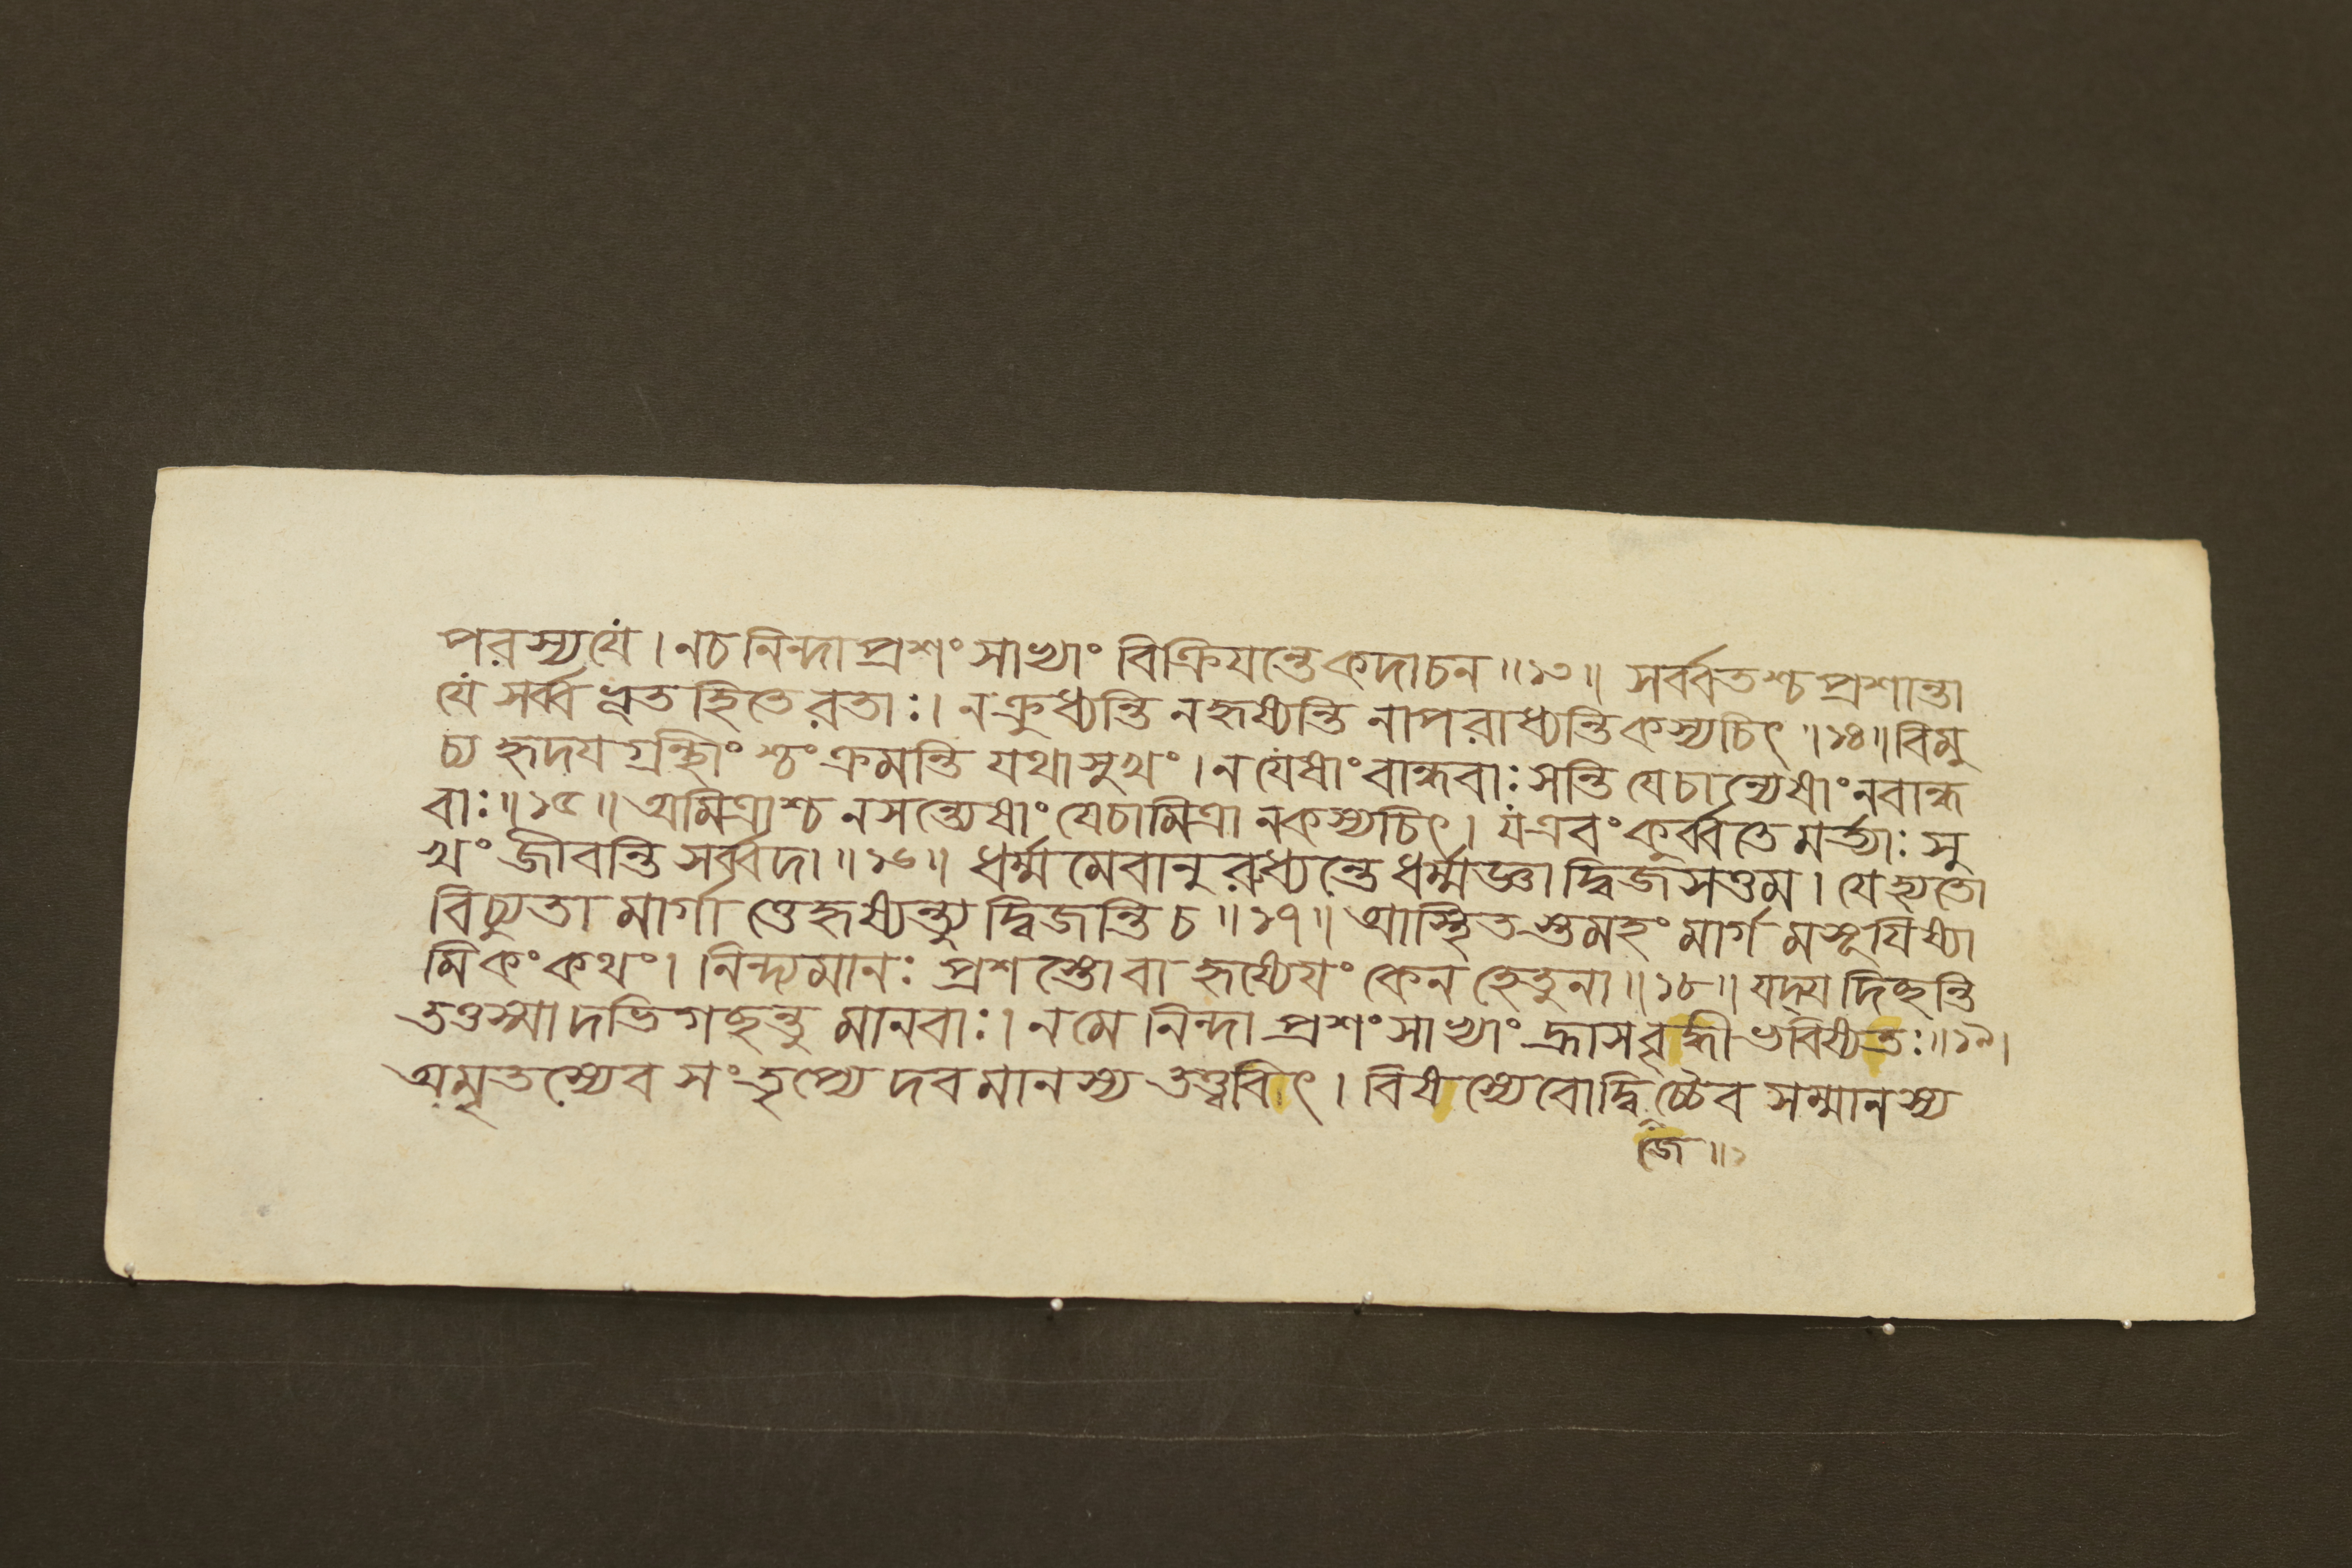 পরস্যযে । নচ নিন্দা প্রশংসাভ্যাং বিক্রিযন্তে কদাচন ॥১৩॥ সর্ব্বতশ্চ প্রশান্তা
যে সর্ব্বভূতহিতে রতাঃ । ন ক্রুধ্যন্তি ন হৃষ্যন্তি নাপরাধ্যন্তি কস্যচিৎ ॥১৪॥ বিমু
চ্য হৃদযগ্রন্থিং শ্চংক্রমন্তি যথাসুখং । ন যেষাং বান্ধবাঃ সন্তি যেচান্যেষাং ন বান্ধ
বাঃ ॥১৫॥ অমিত্রাশ্চ ন সন্ত্যেষাং যেচামিত্রা ন কস্যচিৎ । য এবং কুর্ব্বতে মর্ত্যাঃ সু
খং জীবন্তি সর্ব্বদা ॥১৬॥ ধর্ম্মমেবানুরুধ্যন্তে ধর্ম্মজ্ঞা দ্বিজসত্তম । যে হ্যতো
বিচ্যুতা মার্গাত্তে হৃষ্যন্ত্যুদ্বিজন্তি চ ॥১৭॥ আস্থিতস্তুমহং মার্গমসূযিষ্যা
মি কং কথং । নিন্দ্যমানঃ প্রশস্তো বা হৃষ্যেযং কেন হেতুনা ॥১৮॥ যদ্যদিচ্ছন্তি
তত্তস্মাদভিগচ্ছন্তু মানবাঃ । ন মে নিন্দা প্রশংসাভ্যাং হ্রাসবৃদ্ধী ভবিষ্যতঃ ॥১৯।
অমৃতস্যেব সংতৃপ্যেদবমানস্য তত্ত্ববিৎ । বিষস্যেবোদ্বিচ্চৈব সম্মানস্য
জে ॥১